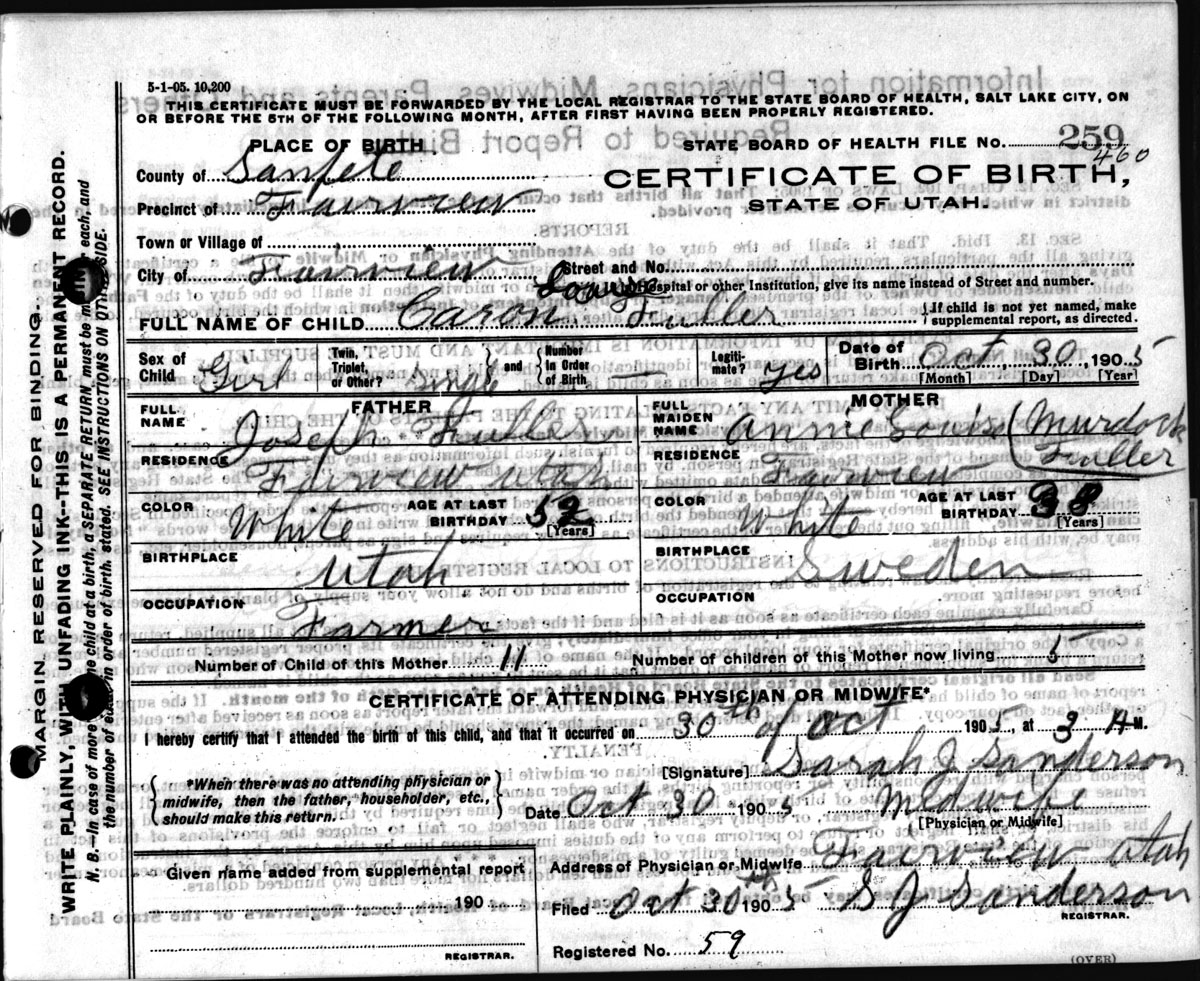 5-1-05. 10,200
THIS CERTIFICATE MUST BE FORWARDED BY THE LOCAL REGISTRAR TO THE STATE BOARD OF HEALTH, SALT LAKE CITY, ON
OR BEFORE THE 5TH OF THE FOLLOWING MONTH, AFTER FIRST HAVING BEEN PROPERLY REGISTERED.
PLACE OF BIRTH.
STATE BOARD OF HEALTH FILE NO. 259
460
County of Sanpete
CERTIFICATE OF BIRTH,
STATE OF UTAH.
Precinct of Fairview
Town or Village of
City of Fairview Street and No.
Hospital or other Institution, give its name instead of Street and number.
FULL NAME OF CHILD Caron Louise Fuller { If child is not yet named, make supplemental report, as directed.
Sex of Child Girl Twin, Triplet, or Other? Single and Number in Order of Birth Legitimate? yes Date of Birth Oct, 30, 1905
[Month] [Day] [Year]
FATHER
FULL NAME Joseph Fuller
RESIDENCE Fairview Utah
COLOR White AGE AT LAST BIRTHDAY 52 [Years]
BIRTHPLACE Utah
OCCUPATION Farmer
MOTHER
FULL MAIDEN NAME Annie Louise (Murdock Fuller
RESIDENCE Fairview
COLOR White AGE AT LAST BIRTHDAY 38 [Years]
BIRTHPLACE Sweden
OCCUPATION
Number of Child of this Mother 11 Number of children of this Mother now living 5
CERTIFICATE OF ATTENDING PHYSICIAN OR MIDWIFE*
I hereby certify that I attended the birth of this child, and that it occurred on 30th of Oct 1905, at 3 A M.
{ *When there was no attending physician or midwife, then the father, householder, etc., should make this return. }
[Signature] Sarah J Sanderson
Date Oct 30 1905 Midwife
[Physician or Midwife]
Given name added from supplemental report
190
REGISTRAR.
Address of Physician or Midwife Fairview Utah
Filed Oct 30th 1905 S J Sanderson
REGISTRAR.
Registered No. 59
(OVER)
MARGIN RESERVED FOR BINDING.
WRITE PLAINLY, WITH UNFADING INK--THIS IS A PERMANENT RECORD.
N. B.--In case of more than one child at a birth, a SEPARATE RETURN must be made for each, and
the number of each, in order of birth, stated. SEE INSTRUCTIONS ON OTHER SIDE.